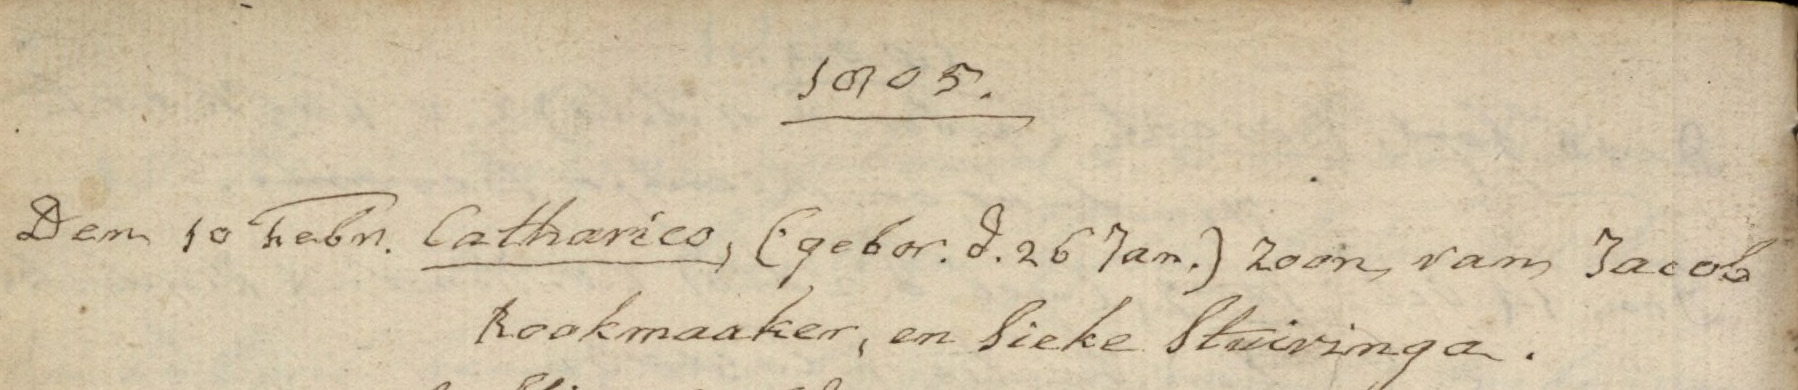 1805.
Den 10 Febr. Catharico, (gebor. d. 26 Jan.) Zoon, van Jacob
Rookmaaker, en Sieke Stuivinga.